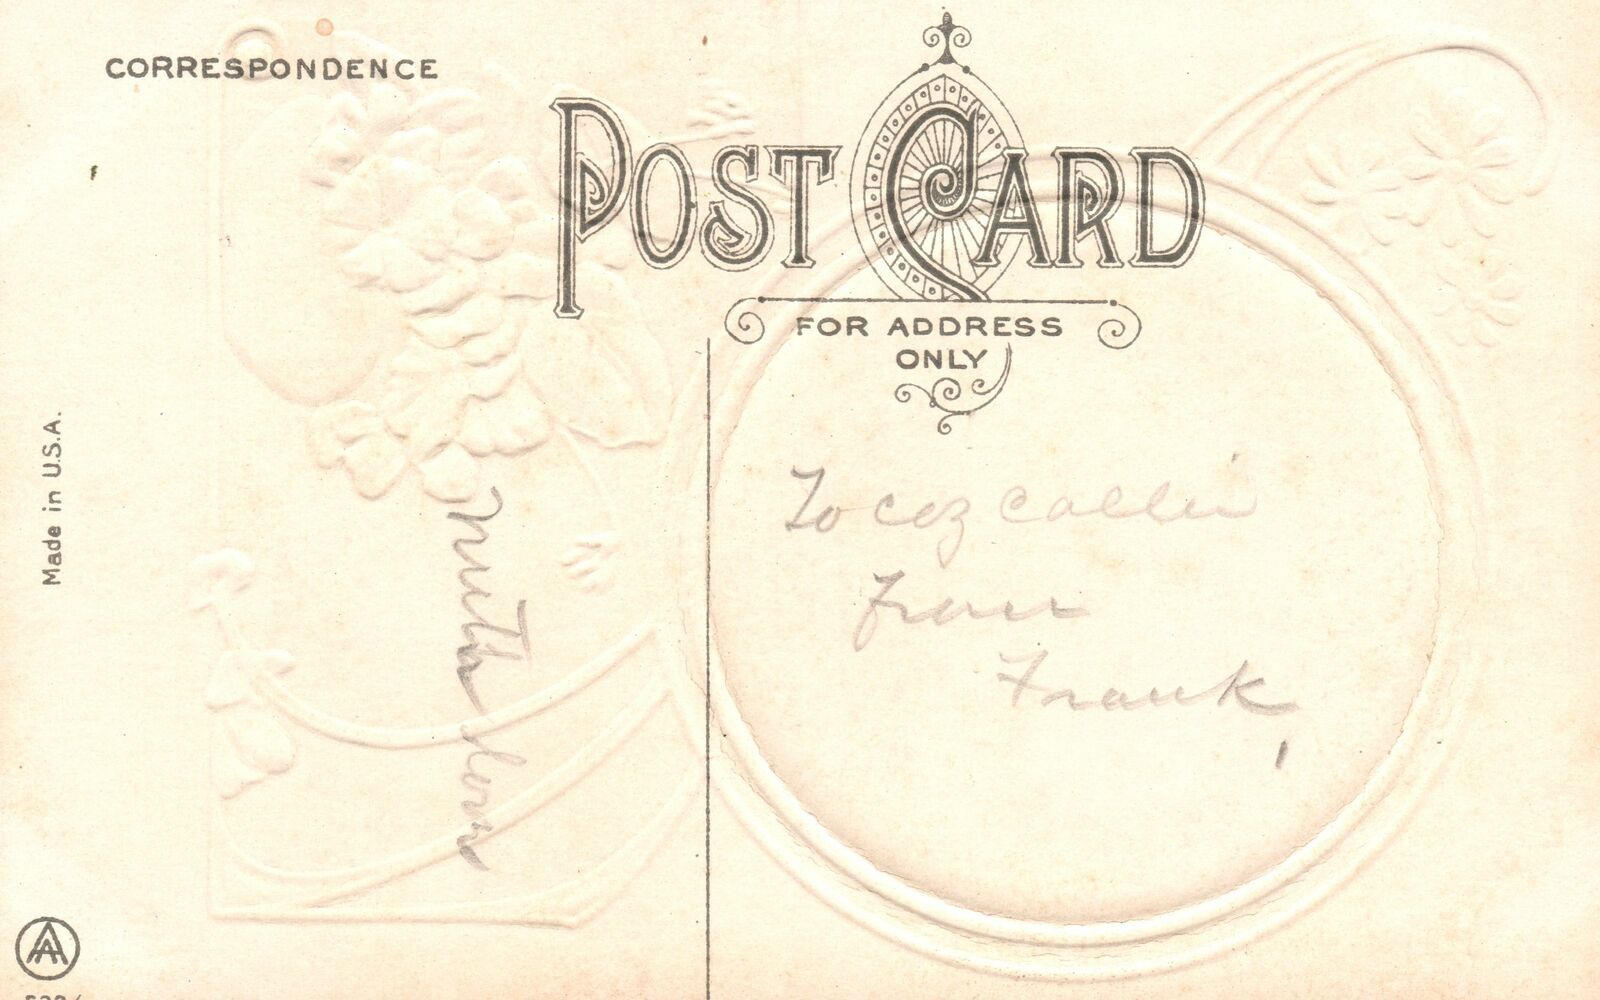 CORRESPONDENCE
POST CARD
FOR ADDRESS
ONLY
Made in U.S.A.
To coz Callie
From
Frank
with love